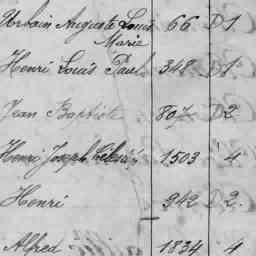 Urbain Auguste Louis 66 D 1
Marie
Henri Louis Paul 348 D 1
Jean Baptiste 807 D 2
Henri Joseph 1503 4
Henri 942 D 2.
Alfred 1834 4